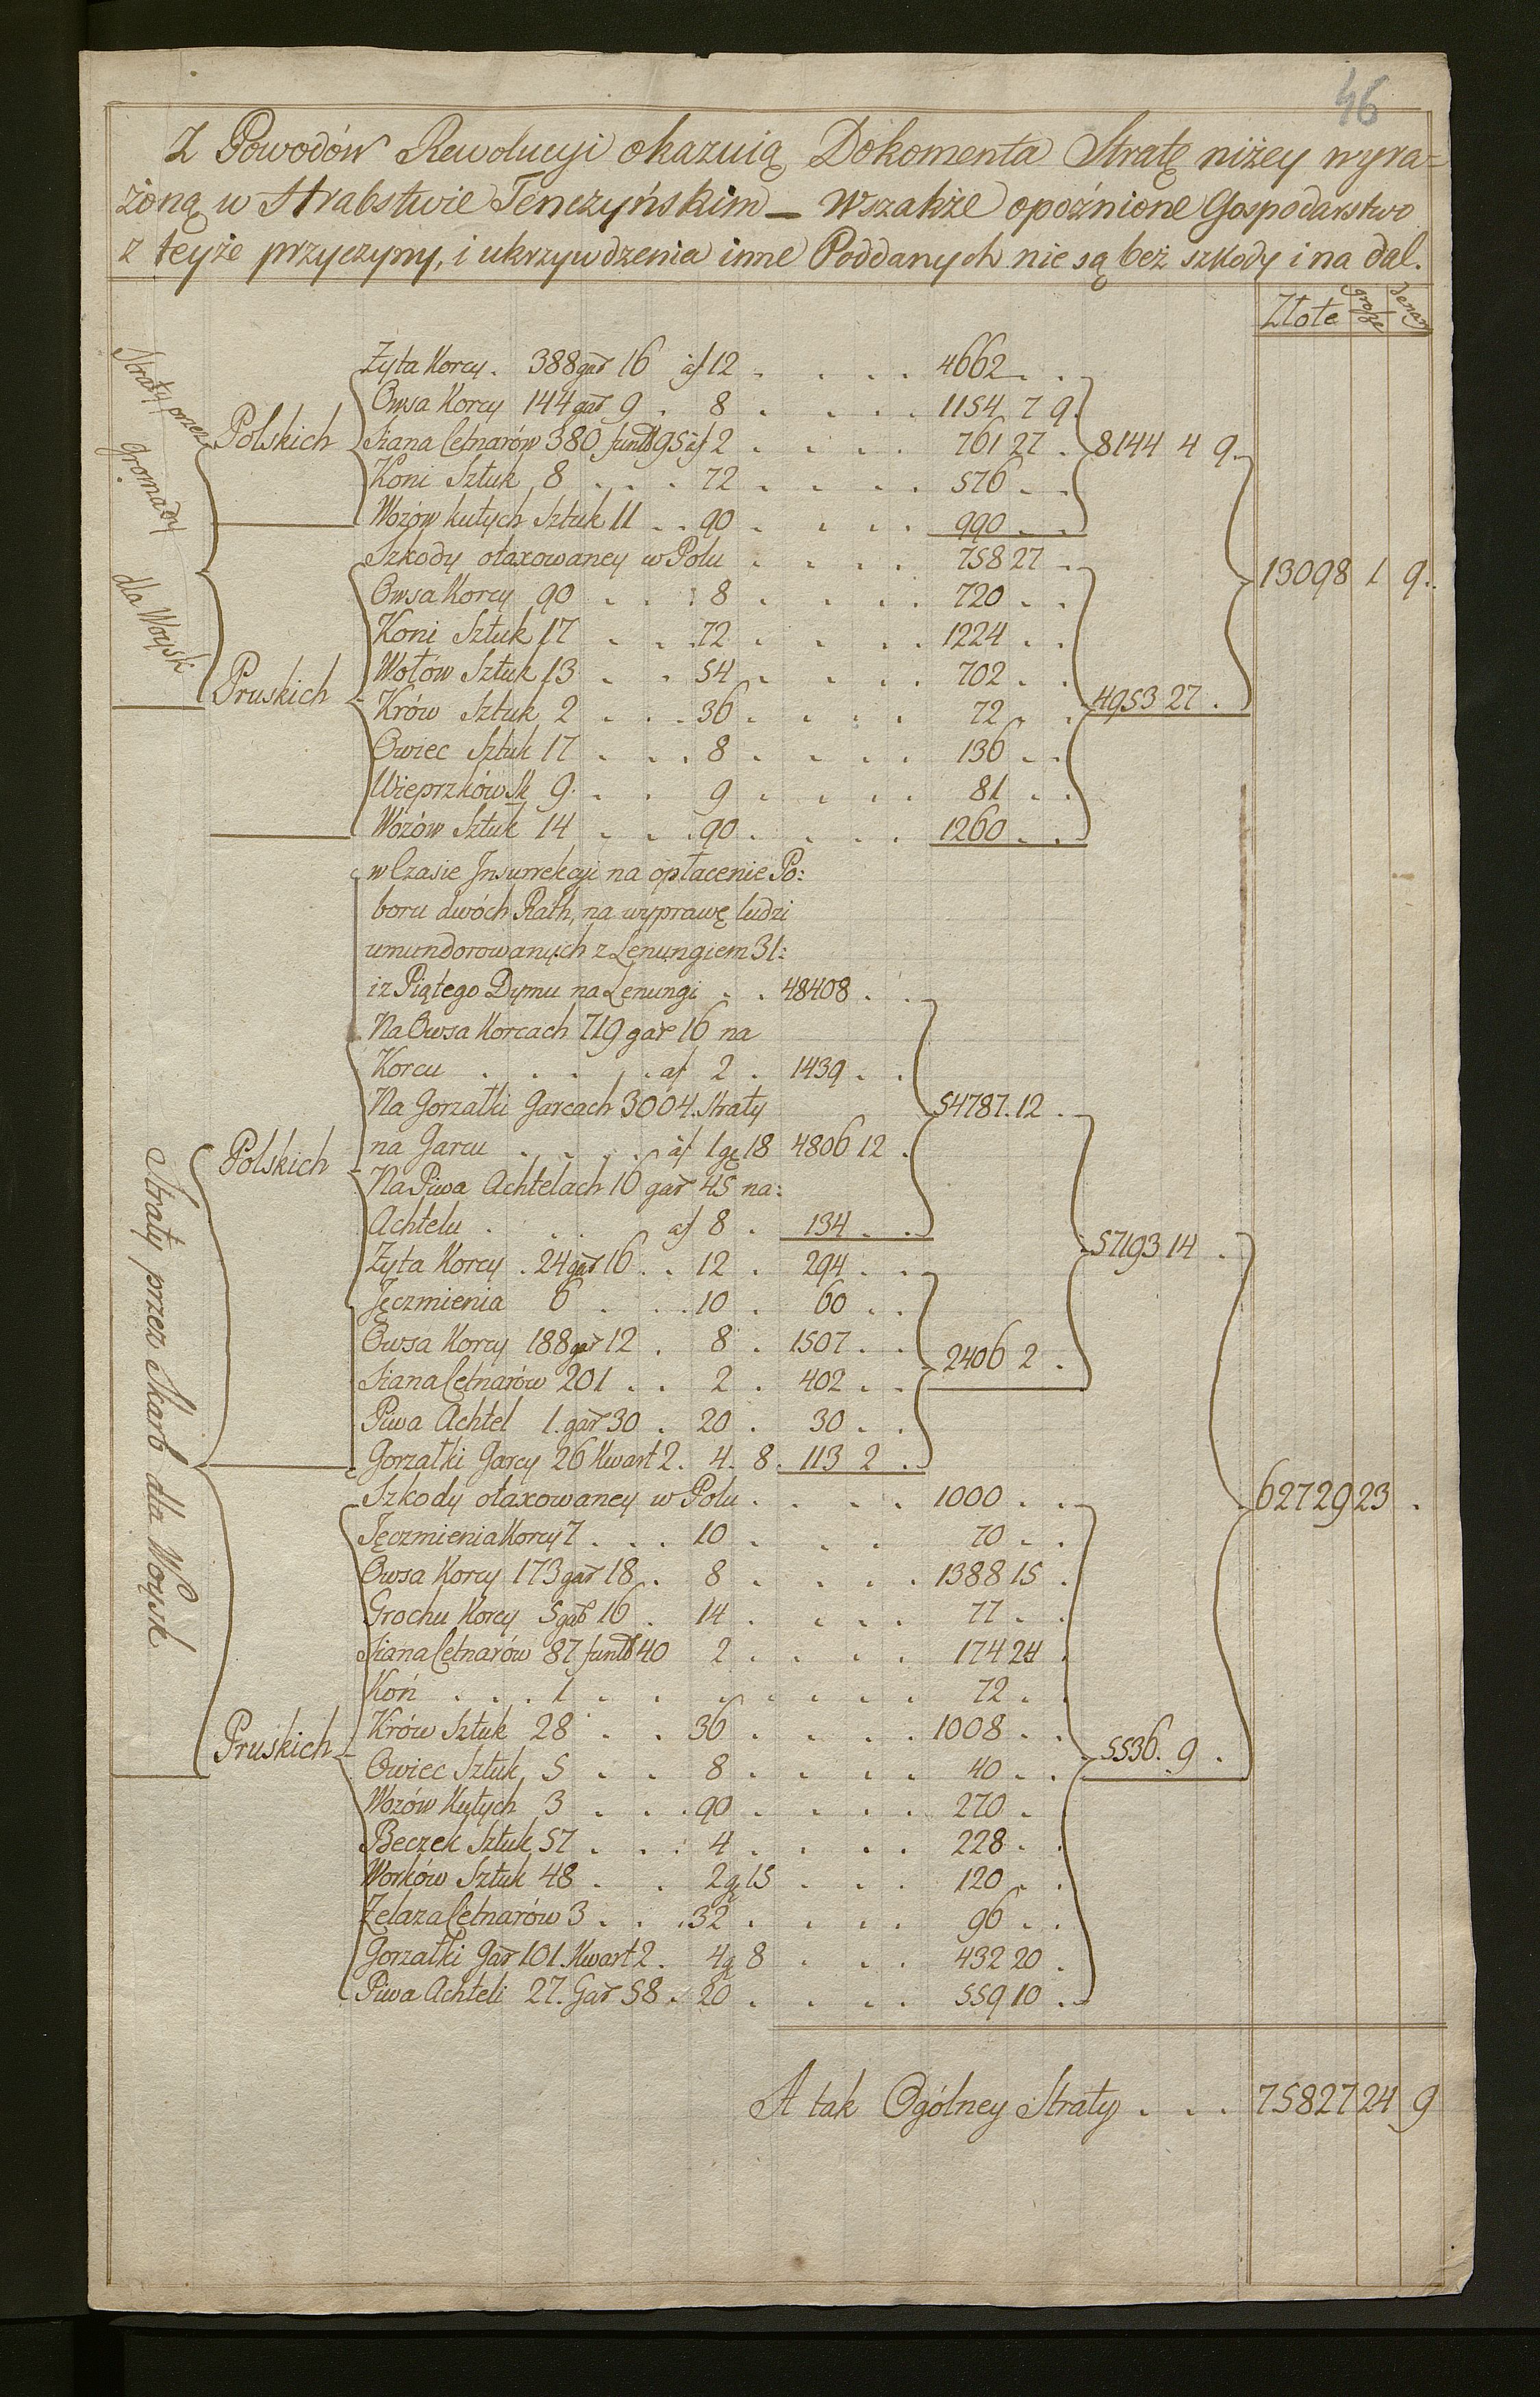 46
Z Powodów Rewolucyi okazuią Dokomenta Stratę niżey wyra=
żoną w Hrabstwie Tenczyńskim — Wszakże opoźnione Gospodarstwo
z teyże przyczyny, i ukrzywdzenia inne Poddanych nie są bez szkody i na dal.
Złote grosze denar
Straty przez gromady dla Woysk
Polskich
Żyta Korcy . 388 gar 16 af 12 . . . . 4662 . .
Owsa Korcy 144 gar 9 . 8 . . . . 1154 7 9.
Siana Cetnarów 380 funtt 95 af 2 . . . . 761 27 . 8144 4 9.
Koni Sztuk 8 . . . 72 . . . . 576 . .
Wozów kutych Sztuk 11 . . 90 . . . . 990 . .
Szkody otaxowaney w Polu . . . . 758 27 .
13098 1 9.
Pruskich
Owsa Korcy 90 . . . 8 . . . . 720 . .
Koni Sztuk 17 . . . 72 . . . . 1224 . .
Wołów Sztuk 13 . . 54 . . . . 702 . .
Krów Sztuk 2 . . . 36 . . . . 72 . . 4953 27 .
Owiec Sztuk 17 . . . 8 . . . . 136 . .
Wieprzków Sk 9 . . 9 . . . . 81 . .
Wozów Sztuk 14 . . . 90 . . . . 1260 . .
w Czasie Jnsurrekcyi na opłacenie Po:
boru dwóch Rath, na wyprawę ludzi
umundorowanych z Lenungiem 31:
i z Piątego Dymu na Lenungi . . 48408 . .
Na Owsa Korcach 719 gar 16 na
Korcu . . . . . af 2 . 1439 . .
Na Gorzałki Garcach 3004. Straty 54787. 12 .
Straty przez Skarb dla Woysk
Polskich
na Garcu . . . . af 1 gr 18 4806 12 .
Na Piwa Achtelach 16 gar 45 na:
Achtelu . . . af 8 . 134 . .
57193 14 .
Żyta Korcy . 24 gar 16 . . 12 . 294 . .
Jęczmienia 6 . . . 10 . 60 . .
Owsa Korcy 188 gar 12 . 8 . 1507 . .
2406 2 .
Siana Cetnarów 201 . . 2 . 402 . .
Piwa Achtel 1. gar 30 . 20 . 30 . .
Gorzałki Garcy 26 Kwart 2. 4. 8. 113 2 .
Szkody otaxowaney w Polu . . . . 1000 . . 62729 23 .
Jęczmienia Korcy 7 . . . 10 . . . 70 . .
Owsa Korcy 173 gar 18 . 8 . . . . 1388 15 .
Grochu Korcy 5 gar 16 . 14 . . . . 77 . .
Siana Cetnarów 87 funtt 40 2 . . . . 174 24 .
Koń . . . 1 . . . . . . . 72 . .
Krów Sztuk 28 . . 36 . . . . 1008 . .
Pruskich
5536. 9 .
Owiec Sztuk 5 . . 8 . . . . 40 . .
Wozów Kutych 3 . . . 90 . . . . 270 .
Beczek Sztuk 57 . . . 4 . . . . 228 . .
Worków Sztuk 48 . . 2 gr 15 . . . 120 . .
Żelaza Cetnarów 3 . . . 32 . . . . 96 . .
Gorzałki Gar 101. Kwart 2 . 4 gr 8 . . . 432 20 .
Piwa Achteli 27. Gar 58 . 20 . . . . 559 10 .
A tak Ogólney Straty . . . 75827 24 9